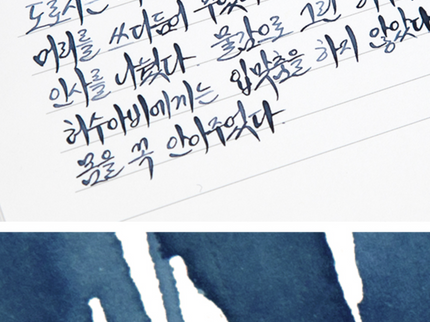 도로시는
머리를
인사를 나눴다. 물감으로 그린
허수아비에게는 입맞춤을 하지 않았다
몸을 꼭 안아주었다.